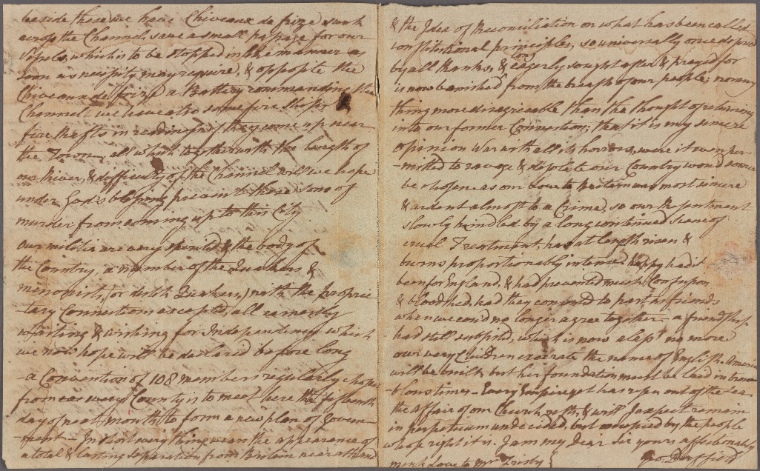 beside these we have Chiveaux de frize sunk
across the Channel, save a small passage for our
Vessels, which is to be stopped in like manner as
soon as necessity may require, & opposite the
Chiveaux de frize a Battery commanding the
Channel we have also some fire Ships &
fire Rafts in readiness if they come up near
the Town all which together with the length of
our River & difficulty of the Channel will we hope
under God's blessing prevent these sons of
murder from coming up to this City
Our militia are very spirited & the body of
the Country, a number of the Quakers &
menonists, (or dutch Quakers,) with the Proprie-
tary Connection excepted, all earnestly
waiting & wishing for Independency which
we now hope will be declared before long
a Convention of 108 members regularly chosen
from our every County is to meet here the fifteenth
day of next month to form a new plan of Govern-
ment — In short every thing wears the appearance of
a total & lasting separation from Britain near at hand
& the Idea of Reconciliation on what has been called
constitutional principles, so universally once desired
by all Ranks, & eagerly sought after & prayed for
is now banished from the breasts of our people, nor any
thing more disagreeable than the thought of returning
into our former Connection, that it is my sincere
opinion war with all its horrors, were it even per-
-mitted to ravage & depopulate our Country would sooner
be chosen as our Love to Britain was most sincere
& ardent almost to a Crime, so our Resentment
slowly kindled by a long continued scene of
cruel Treatment, has at length risen &
burns proportionably intense happy had it
been for England, & had prevented much Confusion
& bloodshed, had they consented to part as friends
when we could no longer agree together — a friendship
had still subsisted, which is now alass! no more
our very Children execrate the name of English America
will be built, but her foundation must be laid in
troublous times — Every Empire yet has risen out of the
the affair of our Church rests, & will I expect remain
in perpetuum undecided, but occupied by the people
whose right it is. I am my Dear Sir yours affectionately
my kind Love to Mr Frisby
Geo Duffield